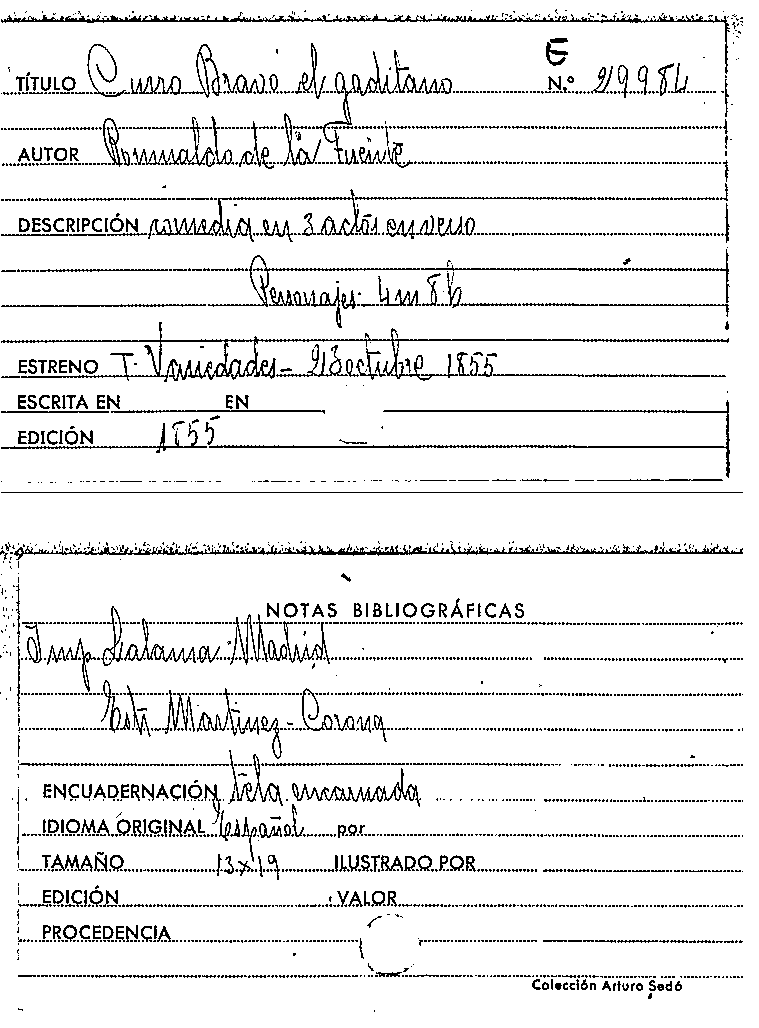 E
TÍTULO Curro Bravo el gaditano N.º 29984
AUTOR Romualdo de la Fuente
DESCRIPCIÓN comedia en 3 actos en verso
Personajes- 4 m 8 h
ESTRENO T. Variedades- 23 octubre 1855
ESCRITA EN EN
EDICIÓN 1855
NOTAS BIBLIOGRÁFICAS
Imp Madrid
Estr Martinez-Corona
ENCUADERNACIÓN tela encarnada
IDIOMA ORIGINAL español por
TAMAÑO 13x19 ILUSTRADO POR
EDICIÓN VALOR
PROCEDENCIA
Colección Arturo Sedó